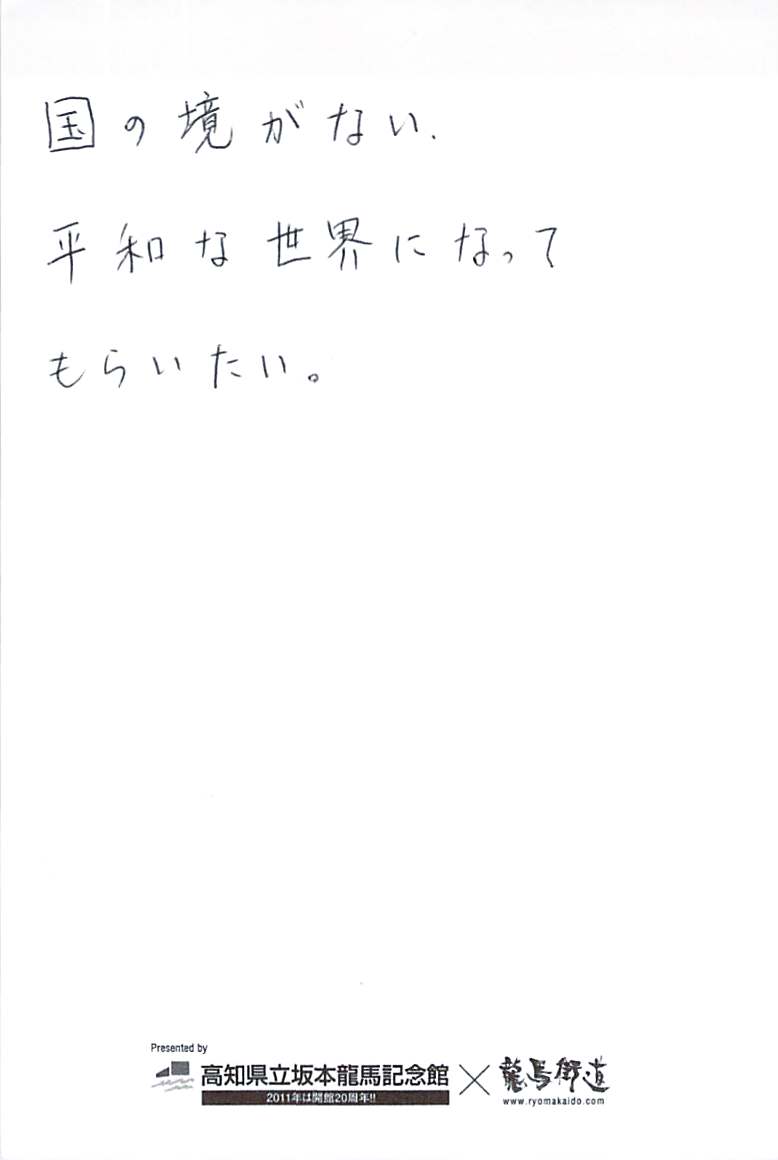 国の境がない、
平和な世界になって
もらいたい。
Presented by
高知県立坂本龍馬記念館×龍馬街道
2011年は開館20周年!!
www.ryomakaido.com